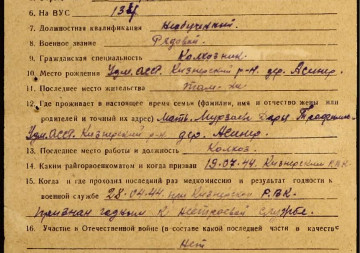 6. На ВУС 134
7. Должностная квалификация Необученный.
8. Военное звание Рядовой
9. Гражданская специальность Колхозник
10. Место рождения Удм.АССР. Кизнерский р-н. дер. Асинер.
11. Последнее место жительства Там-же
12. Где проживает в настоящее время семья (фамилия, имя и отчество жены или
родителей и точный их адрес) Мать.
Удм.АССР. Кизнерский р-н дер. Асинер.
13. Последнее место работы и должность Колхоз.
14. Каким райгорвоенкоматом и когда призван 19.07.44. Кизнерским РВК
15. Когда и где проходил последний раз медкомиссию и результат годности к
военной службе 28.04.44. при Кизнерском РВК.
признан годным к нестроевой службе.
16. Участие в Отечественной войне (в составе какой последней части и в качестве
Нет